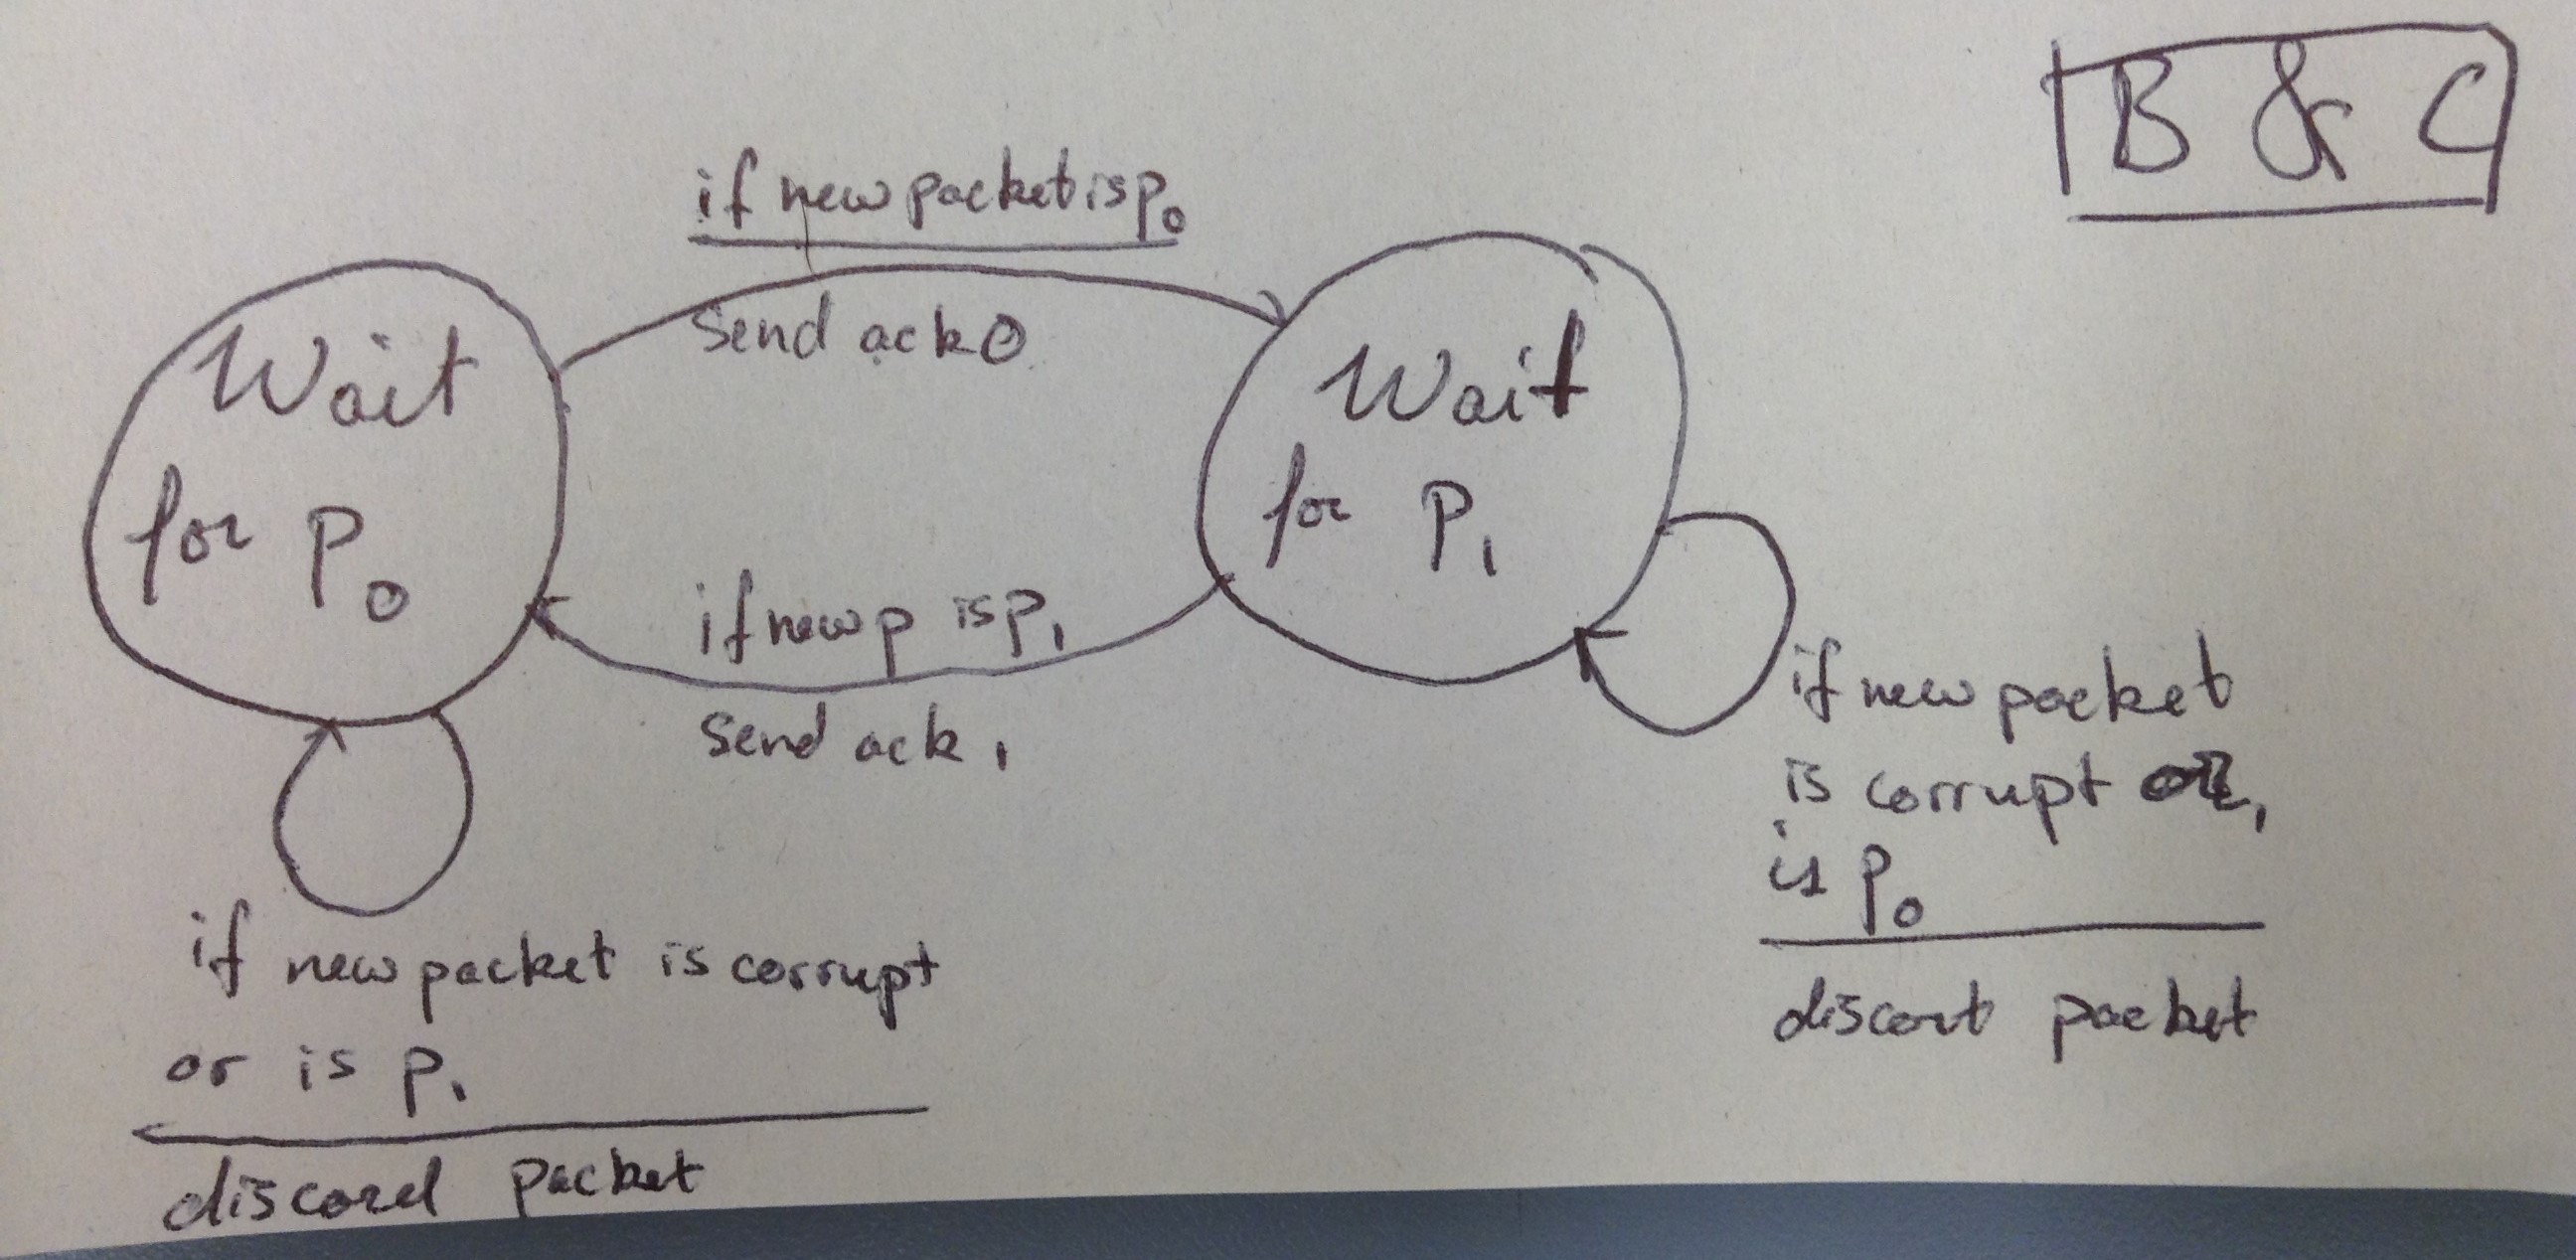 B & C
if new packet is p0
send ack 0
Wait
for P0
Wait
for P1
if new p is p1
send ack 1
if new packet
is corrupt or
is p0
discart packet
if new packet is corrupt
or is p1
discard packet